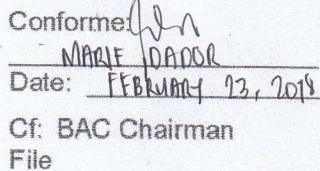 Conforme:
MARIE DADOR
Date: FEBRUARY 23, 2018
Cf: BAC Chairman
File